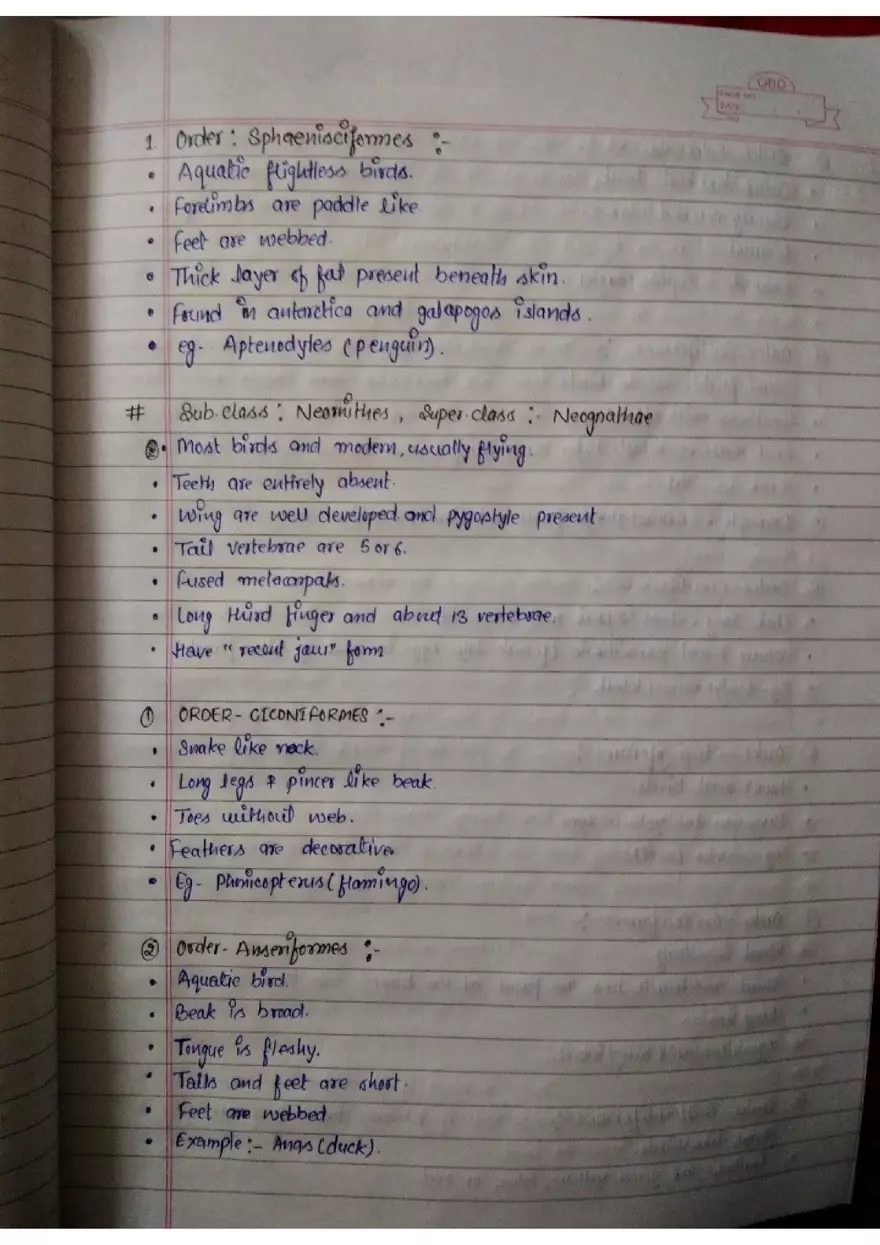 GDD
PAGE NO.
DATE
1. Order: Sphaenisciformes :-
• Aquatic flightless birds.
• Forelimbs are paddle like
• Feet are webbed.
• Thick layer of fat present beneath skin.
• Found in antarctica and galapogos islands.
• eg- Aptenodyles (penguin).
# Sub.class: Neornithes, Super.class:- Neognathae
• Most birds and modern, usually flying.
• Teeth are entirely absent.
• Wing are well developed and pygostyle present
• Tail vertebrae are 5 or 6.
• Fused metacarpals.
• Long third finger and about 13 vertebrae.
• Have "recent jaw" form
① ORDER- CICONIFORMES :-
• Snake like neck.
• Long legs & pincer like beak.
• Toes without web.
• Feathers are decorative
• Eg- Phonicopterus (flamingo).
② Order- Anseriformes :-
• Aquatic bird.
• Beak is broad.
• Tongue is fleshy.
• Tails and feet are short.
• Feet are webbed.
• Example:- Anas (duck).